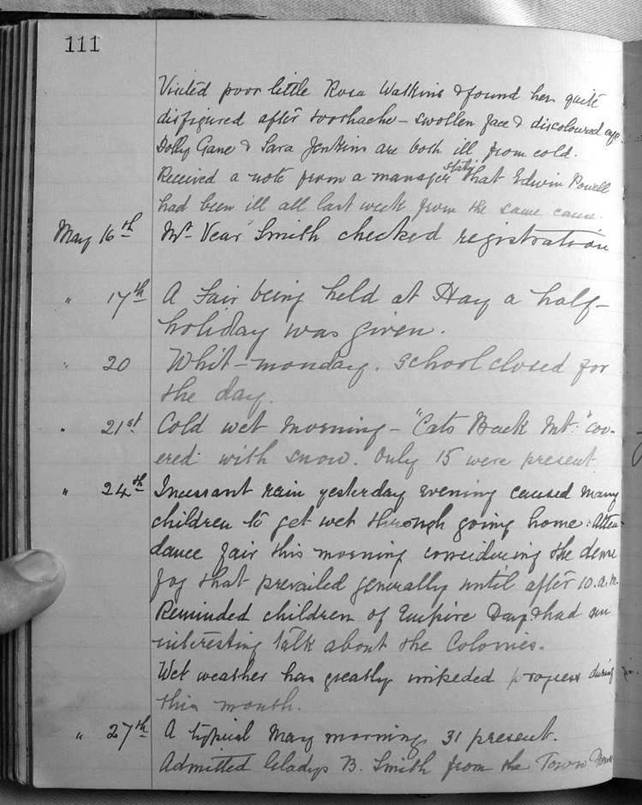 111
Visited poor little Rosa Watkins & found her quite
disfigured after toothache – swollen face & discoloured eye.
Dolly Gane & Sara Jenkins are both ill from cold.
Received a note from a manager stating that Edwin Powell
had been ill all last week from the same cause.
May 16th Mr Vear Smith checked registration
" 17th A Fair being held at Hay a half-
holiday was given.
" 20 Whit-monday. School closed for
the day.
" 21st Cold wet morning – "Cats Back Mt." cov-
ered with snow. Only 15 were present.
" 24th Incessant rain yesterday evening caused many
children to get wet through going home: Atten-
dance fair this morning considering the dense
fog that prevailed generally until after 10.a.m.
Reminded children of Empire Day & had an
interesting talk about the Colonies.
Wet weather has greatly impeded progress during
this month.
" 27th A typical May morning 31 present.
Admitted Gladys B. Smith from the Town